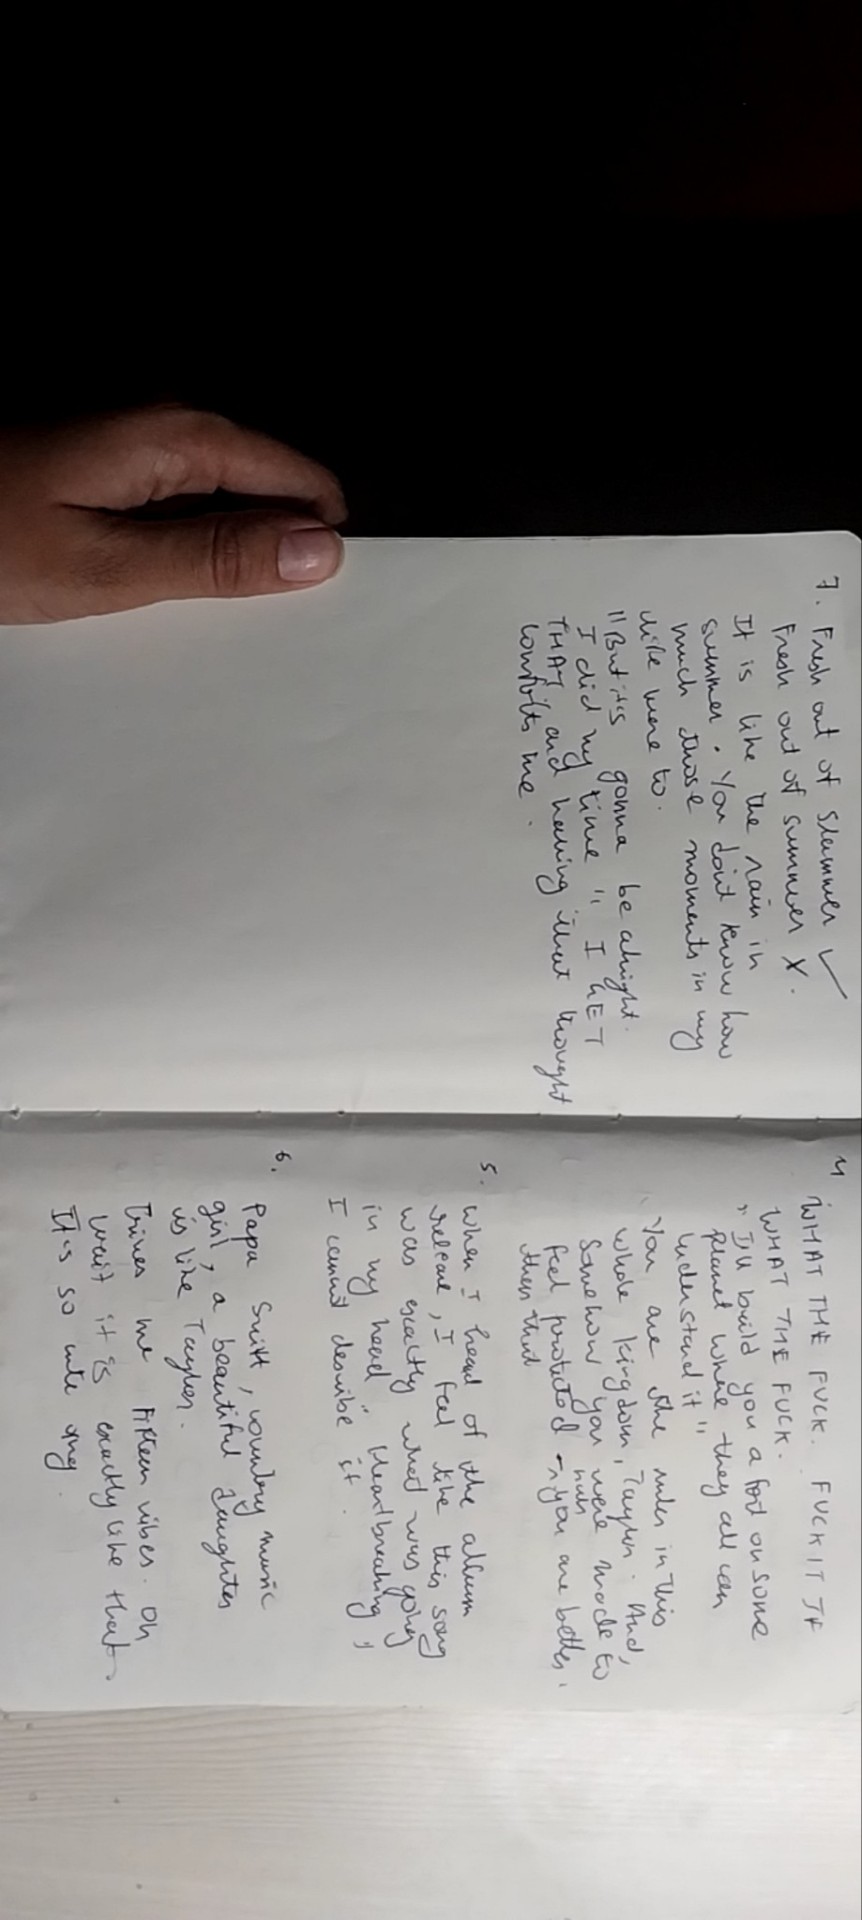 7. Fresh out of Slammer ✓
Fresh out of summer X.
It is like the rain in
summer. You don't know how
much those moments in my
life were to.
"But it's gonna be alright.
I did my time" I GET
THAT and having that thought
comforts me.
4 WHAT THE FUCK. FUCK IT IF
WHAT THE FUCK.
"I'll build you a fort on some
planet where they all can
understand it"
You are the ruler in this
whole kingdom, Taylor. And,
Somehow you were made to
feel protected you are better.
then that
5. When I heard of the album
release, I feel like this song
was exactly what was going
in my head "Heartbreaking"
I cannot describe it.
6.
Papa Swift, country music
girl, a beautiful daughter
is like Taylor.
Gives me Fifteen vibes. Oh
wait it is exactly like that.
It's so cute omg.